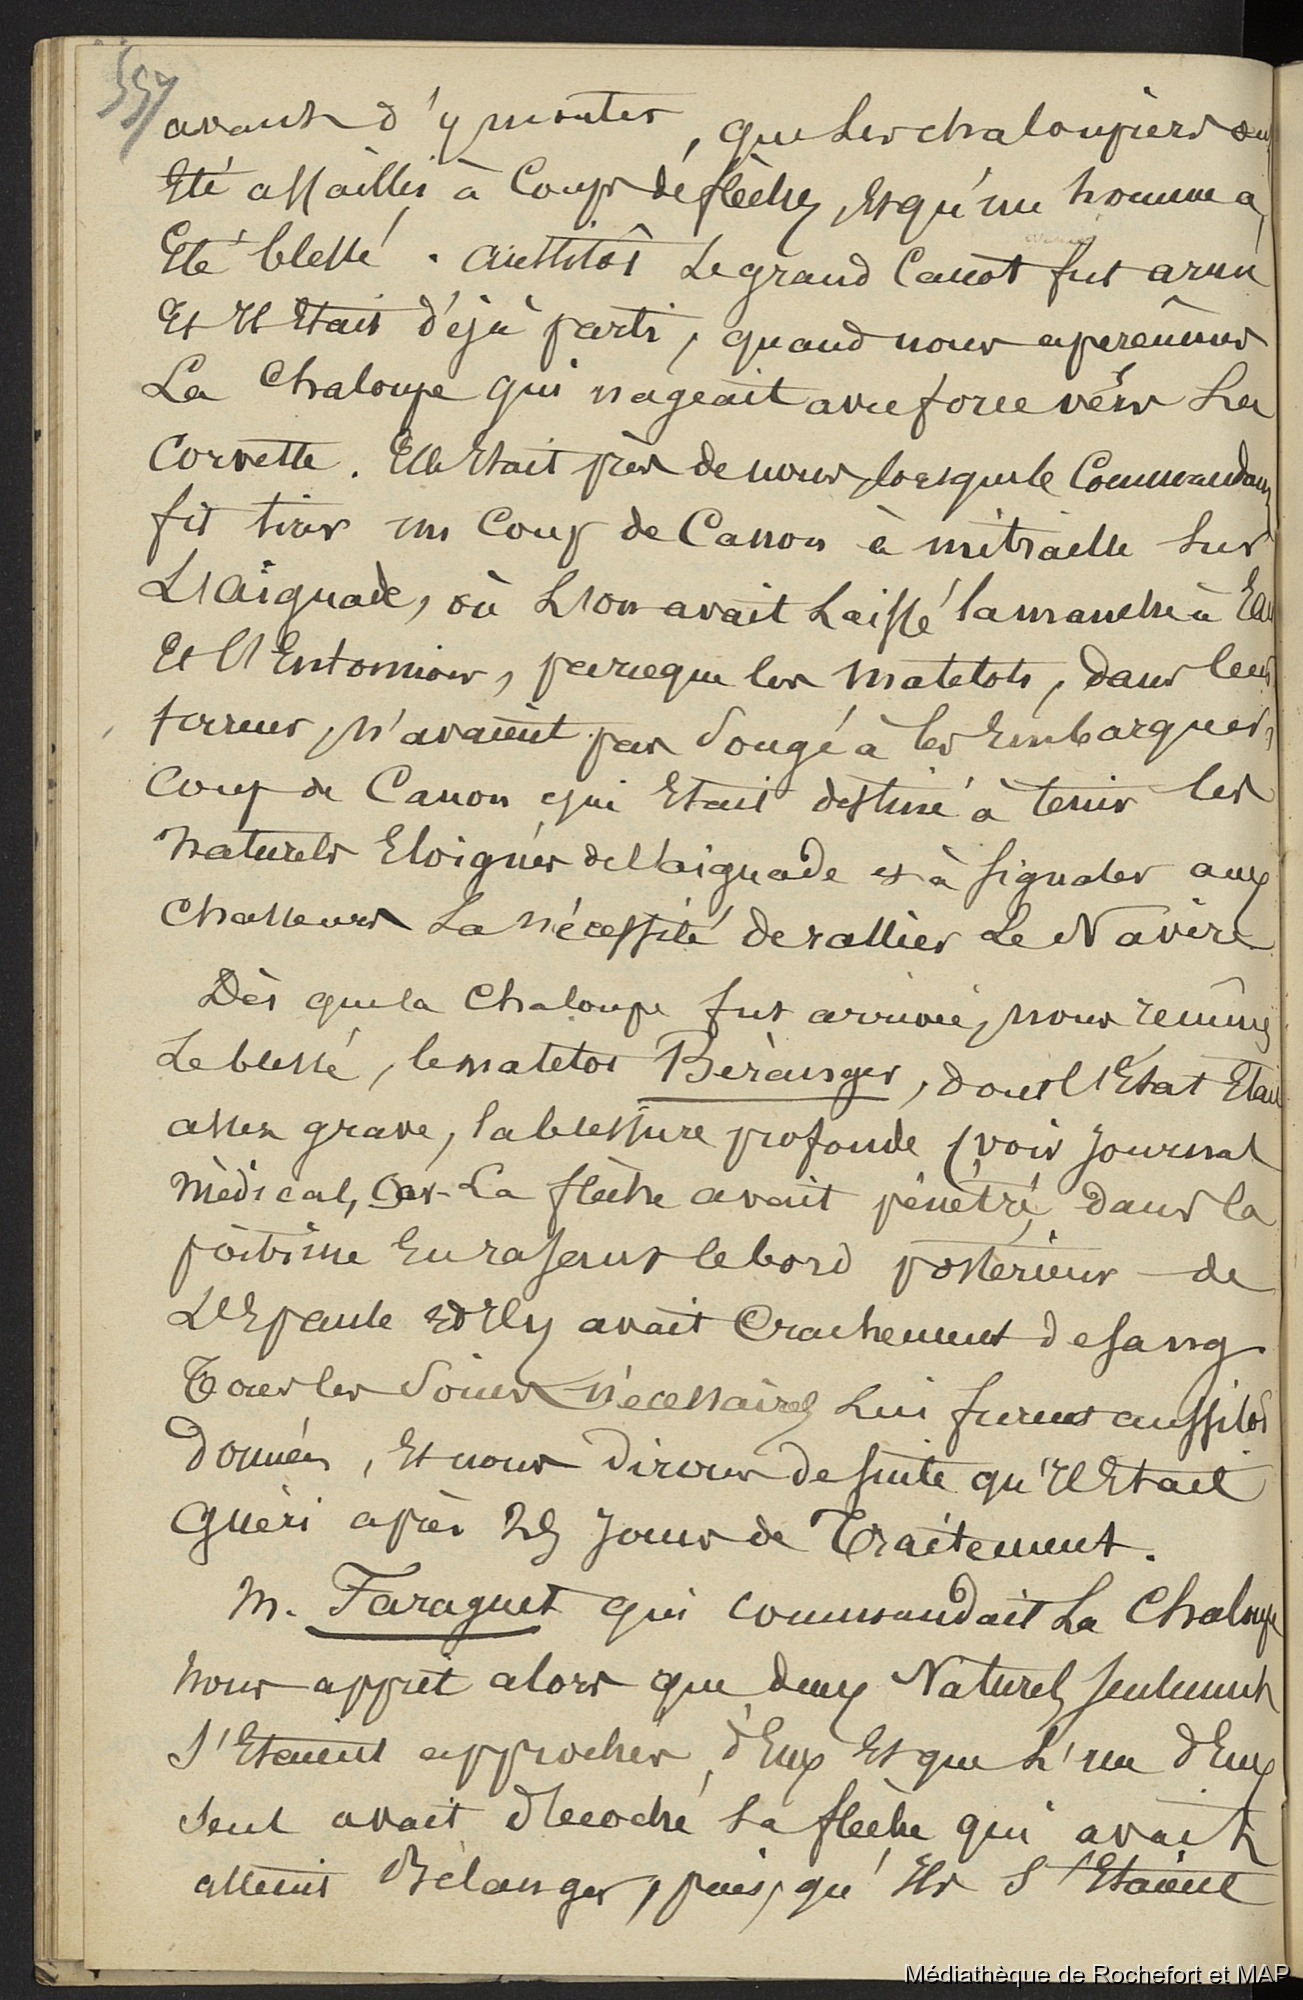 557
avant d'y monter, que les chaloupiers on
Eté assaillis à Coups de flèches, Et qu'un homme a,
Eté blessé. Aussitôt Le grand Canot fut armé
Et Il Etait déjà parti, quand nous aperçûmes
La Chaloupe qui nageait avec force vers La
Corvette. Elle Etait près de nous, lorsque le Commandant
fit tirer un Coup de Canon à mitraille sur
L'aiguade, où L'on avait Laissé la manche à Eau
Et l'Entonnoir, parceque les matelots, dans leur
terreur, n'avaient pas Songé à les Embarquer,
Coup de Canon qui Etait destiné à tenir les
Naturels Eloignés de l'aiguade et à signaler aux
Chasseurs La nécessité de rallier Le Navire
Dès que la Chaloupe fut arrivée, nous reçûmes
Le blessé, le matelot Béranger, dont l'Etat Etait
assez grave, la blessure profonde (voir Journal
Médical, Car La flèche avait pénétré dans la
poitrine En rasant le bord postérieur de
L'Epaule Et Il y avait Crachement de sang
Tous les Soins nécessaires Lui furent aussitôt
donnés, Et nous dirons de suite qu'Il Etait
Guéri après 25 Jours de Traitement.
M. Faraguet qui commandait La Chaloupe
Nous apprit alors que deux Naturels seulement
S'Etaient approchés d'Eux Et que L'un d'Eux
seul avait décoché La flèche qui avait
atteint Bélanger, puis, qu'Ils S'Etaient
Médiathèque de Rochefort et MAP